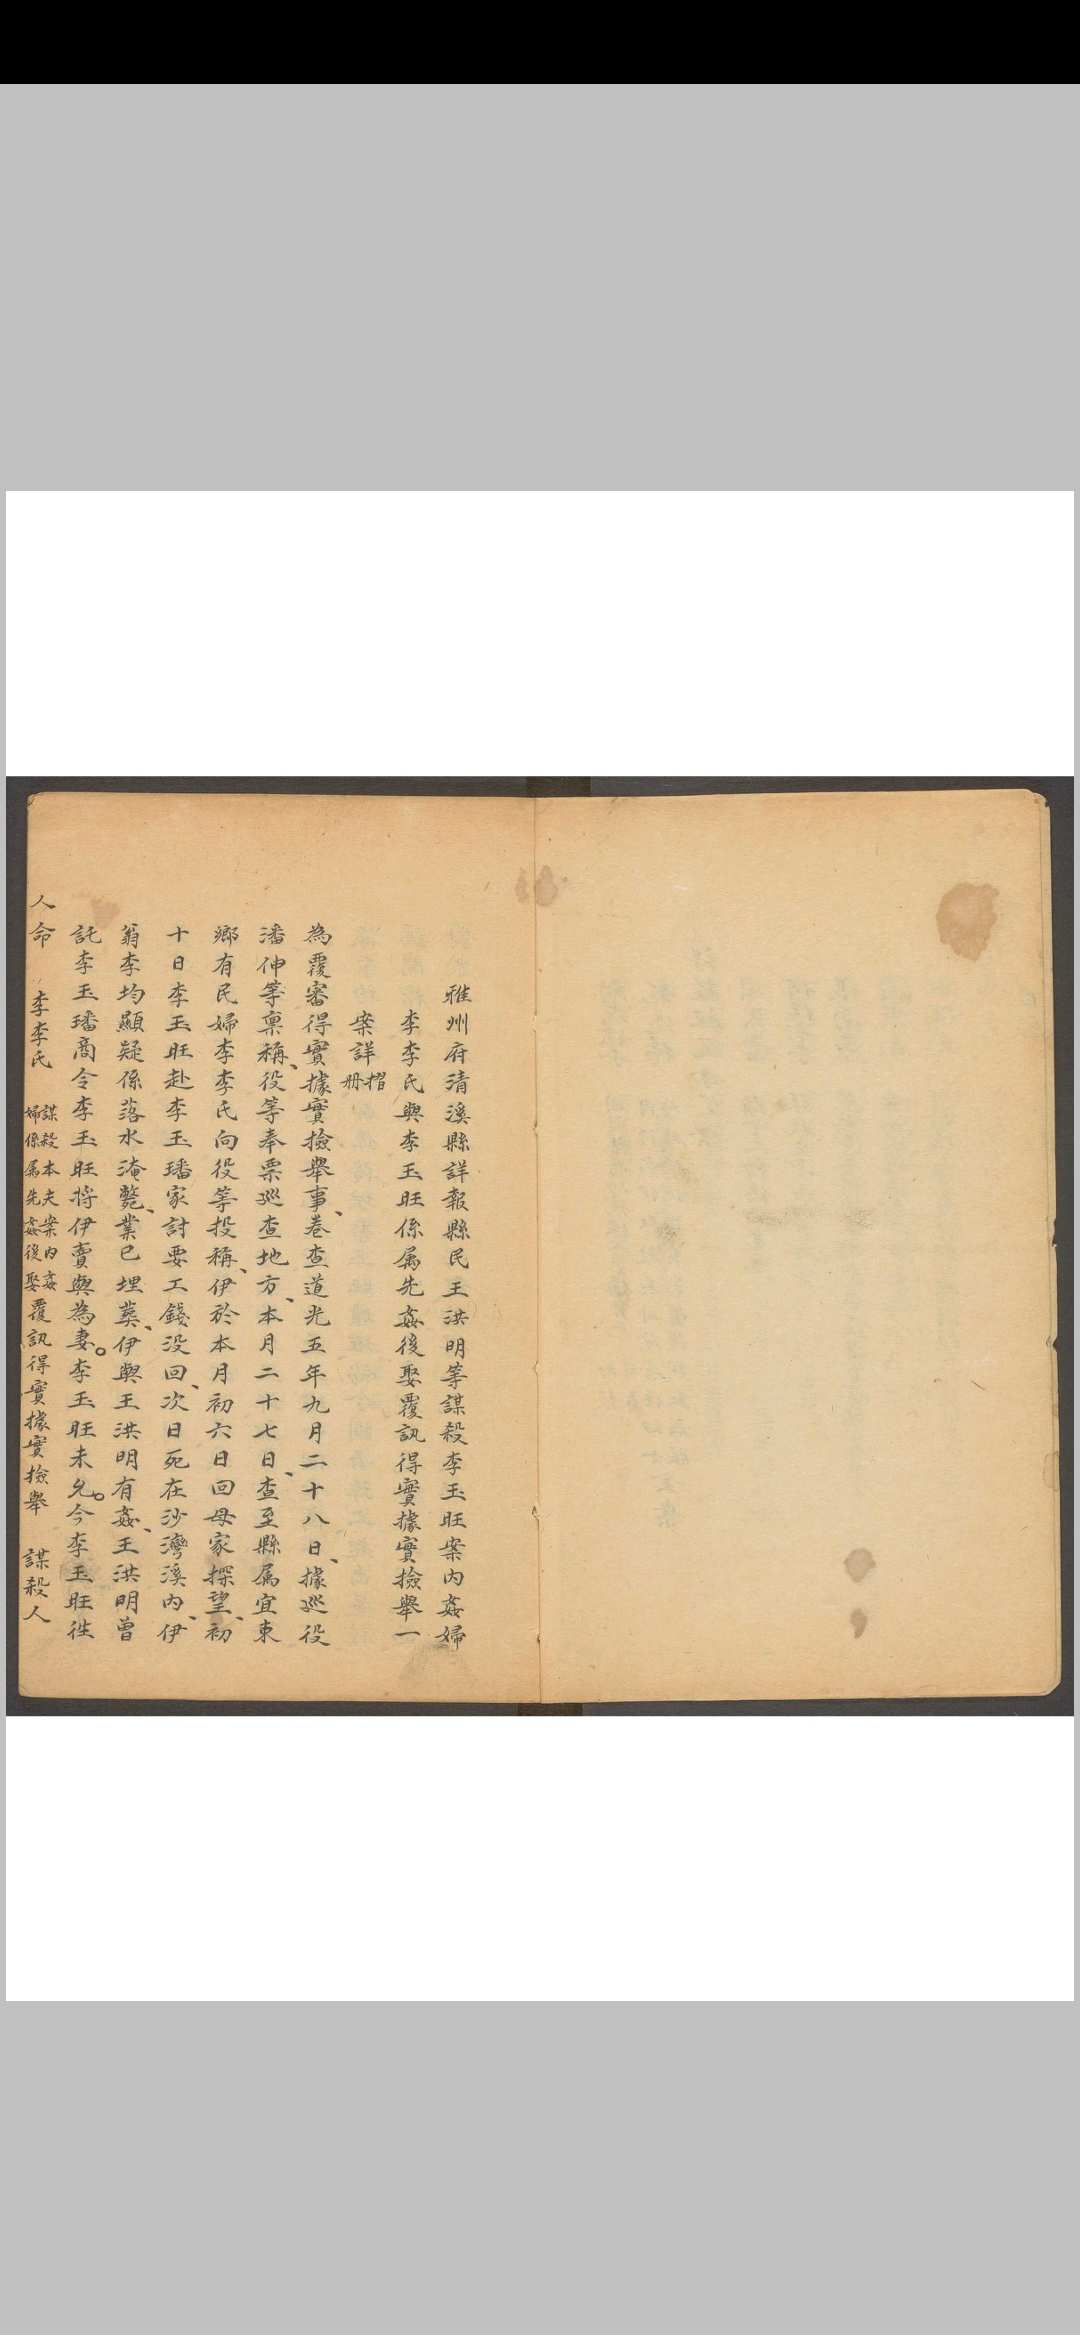 雅州府清溪縣詳報縣民王洪明等謀殺李玉旺案内姦婦
李李氏與李玉旺係属先姦後娶覆訊得實據實撿舉一
案詳摺册
為覆審得實據實撿舉事、卷查道光五年九月二十八日、據巡役
潘仲等禀稱、役等奉票巡查地方、本月二十七日、查至縣属宜東
鄉有民婦李李氏向役等投稱、伊於本月初六日回母家探望、初
十日李玉旺赴李玉璠家討要工錢没回、次日死在沙灣溪内、伊
翁李均顯疑係落水淹斃、業已埋葬、伊與王洪明有姦、王洪明曾
託李玉璠商令李玉旺将伊賣與為妻。李玉旺未允。今李玉旺徃
人命 李李氏 謀殺本夫案内姦婦係属先姦後娶覆訊得實據實撿舉 謀殺人